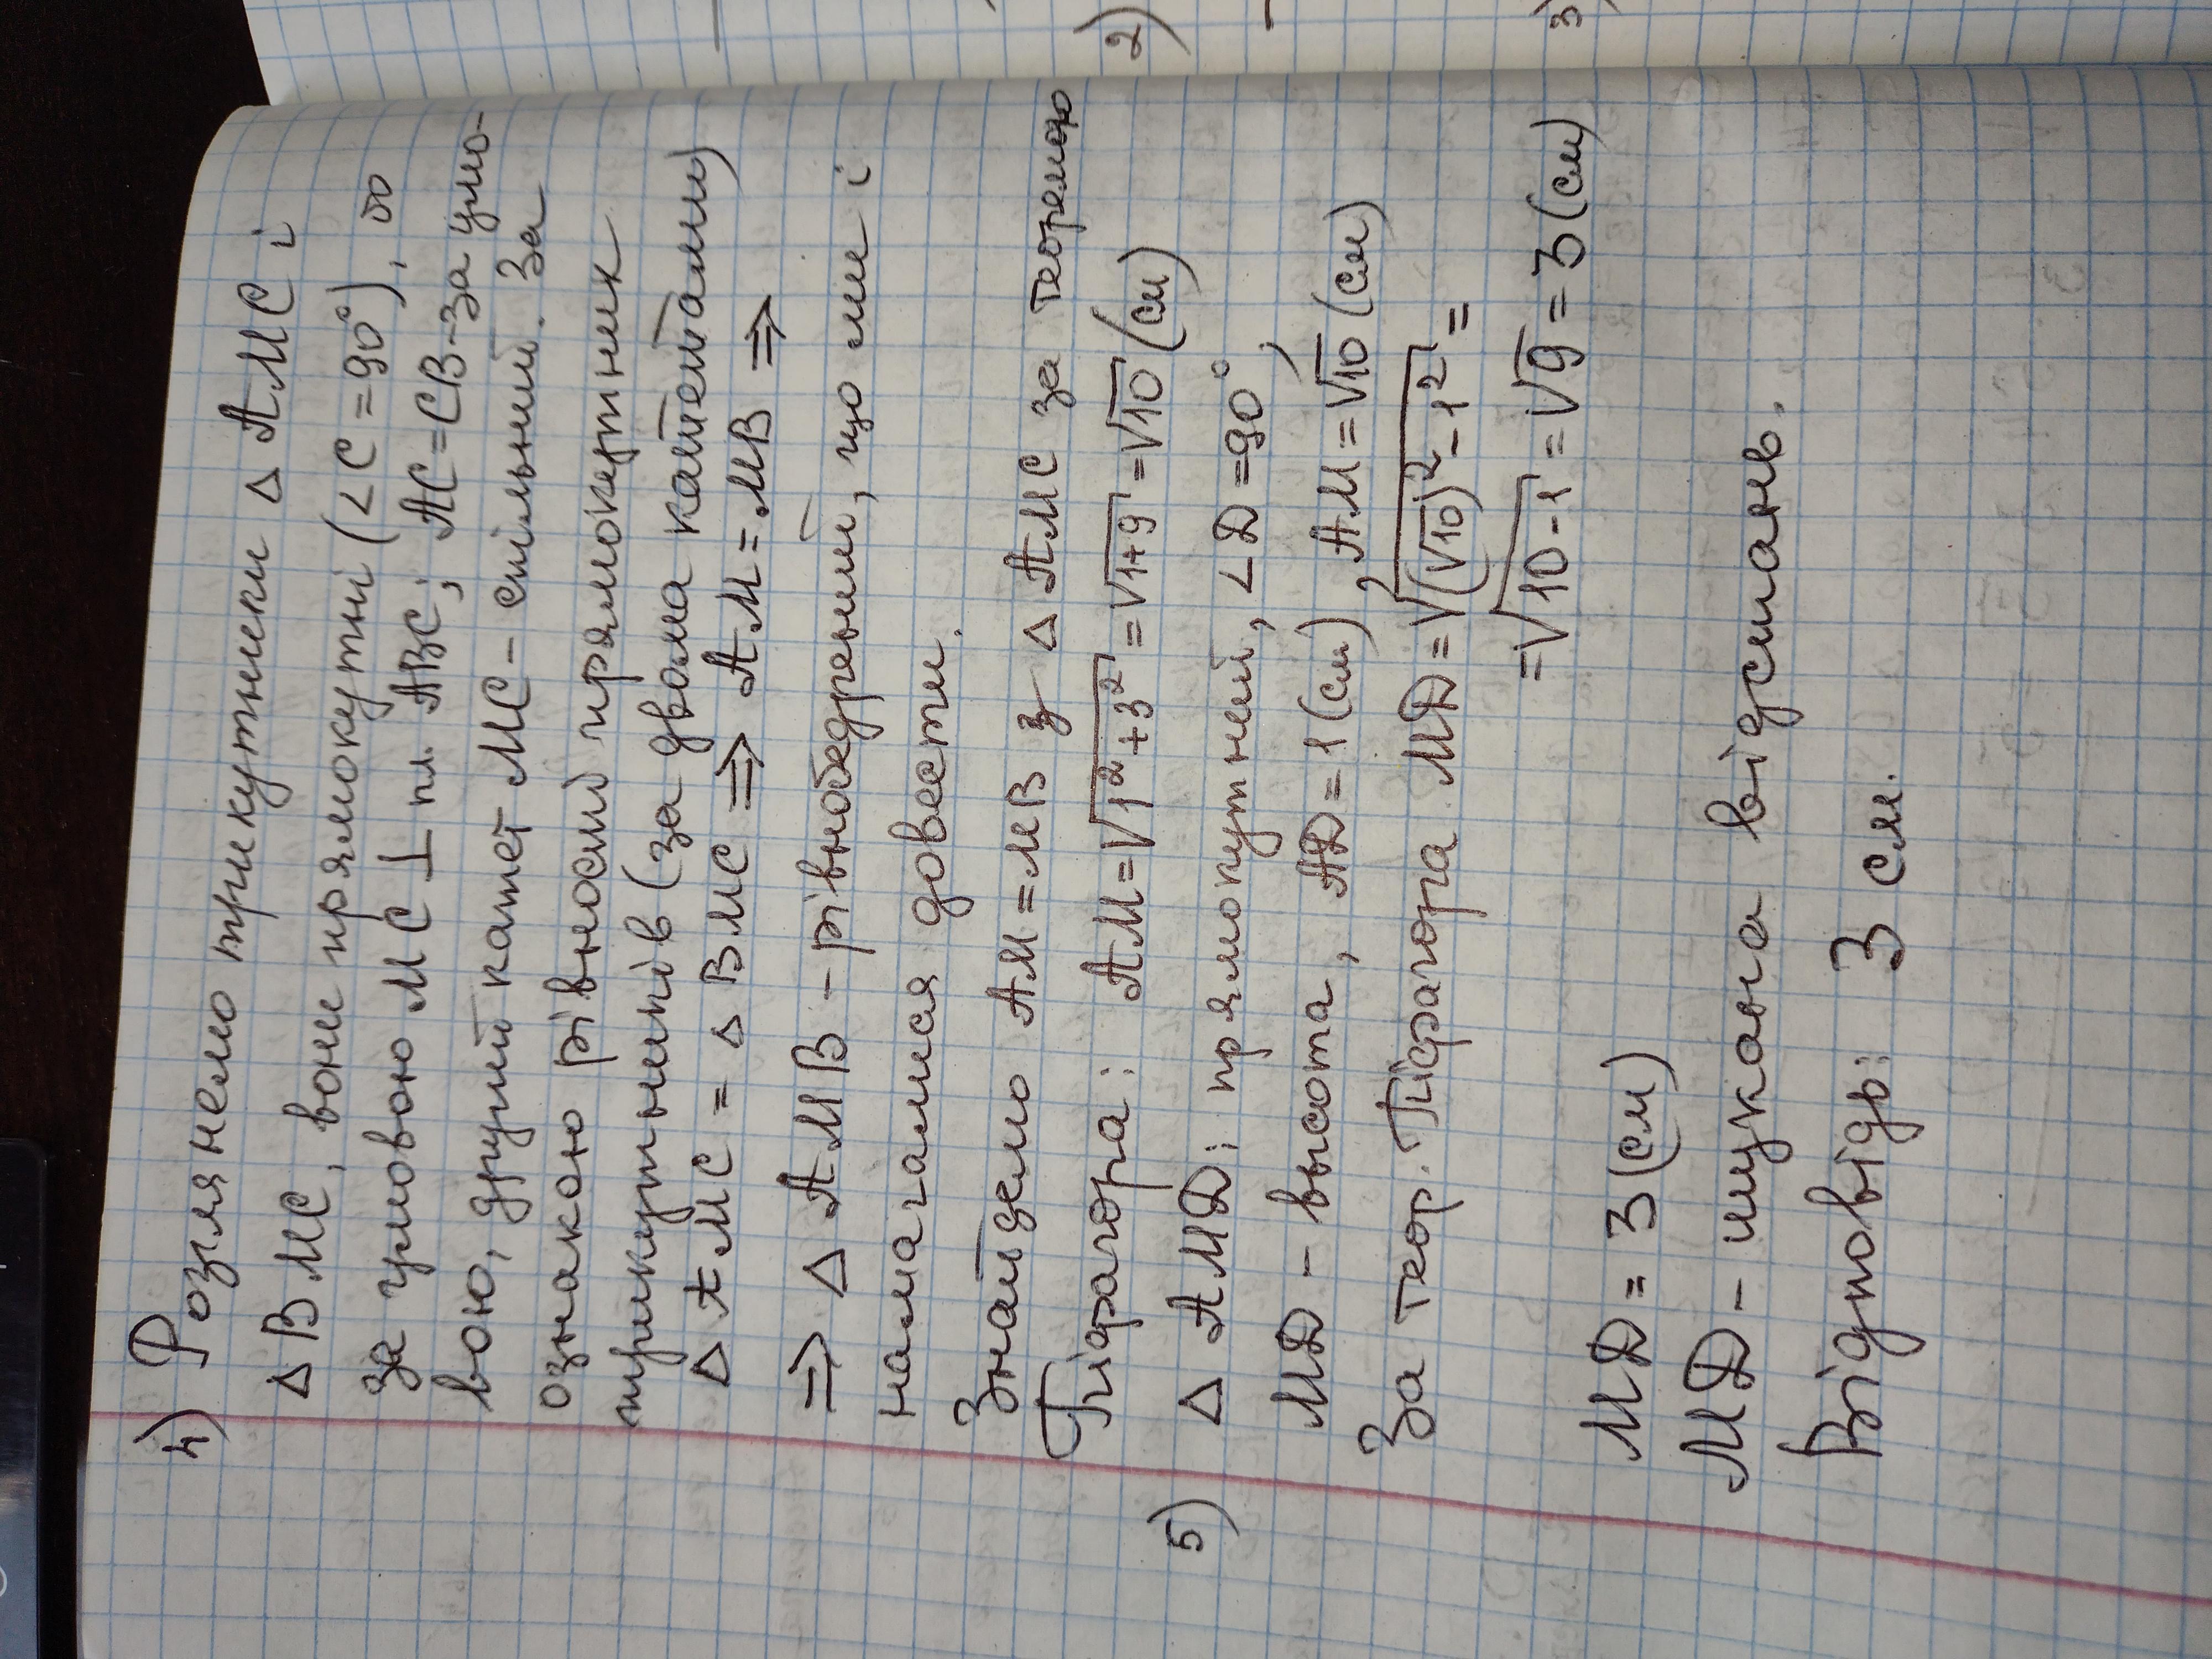 4) Розглянемо трикутники △ АМС і
△ ВМС, вони прямокутні (∠C = 90°), бо
за умовою МС ⊥ пл. АВС; АС = СВ - за умо-
вою, другий катет МС - спільний. За
ознакою рівності прямокутник
трикутників (за двома катетами)
△ АМС = △ ВМС ⇒ АМ = МВ ⇒
⇒ △ АМВ - рівнобедрений, що ми і
намагалися довести.
Знайдемо АМ = МВ з △ АМС за теоремою
Піфагора: АМ = √1² + 3² = √1+9 = √10 (см)
5) △ АМD: прямокутний, ∠D = 90°,
МD - высота, АD = 1 (см), АМ = √10 (см)
За теор. Піфагора МD = √(√10)² - 1² =
= √10 - 1 = √9 = 3 (см)
МD = 3 (см)
МD - шукана відстань.
Відповідь: 3 см.
2)
3)